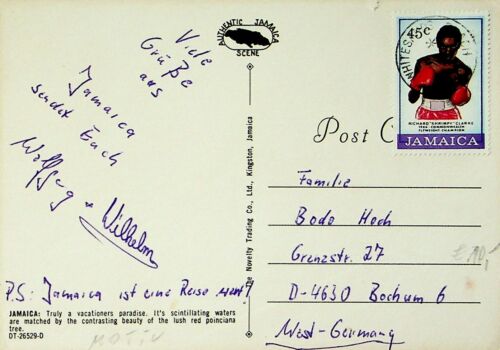 AUTHENTIC JAMAICA
SCENE
Viele
Grüße
aus
Jamaica
sendet Euch
Wolfgang + Wilhelm
P.S: Jamaica ist eine Reise wert!
JAMAICA: Truly a vacationers paradise. It's scintillating waters
are matched by the contrasting beauty of the lush red poinciana
tree.
DT-26529-D
MOTIV
The Novelty Trading Co., Ltd., Kingston, Jamaica
Post C
45c
WHITESA
RICHARD "SHRIMPY" CLARKE
1986 COMMONWEALTH
FLYWEIGHT CHAMPION
JAMAICA
Familie
Bodo Hoch
Grenzstr. 27
D-4630 Bochum 6
West-Germany